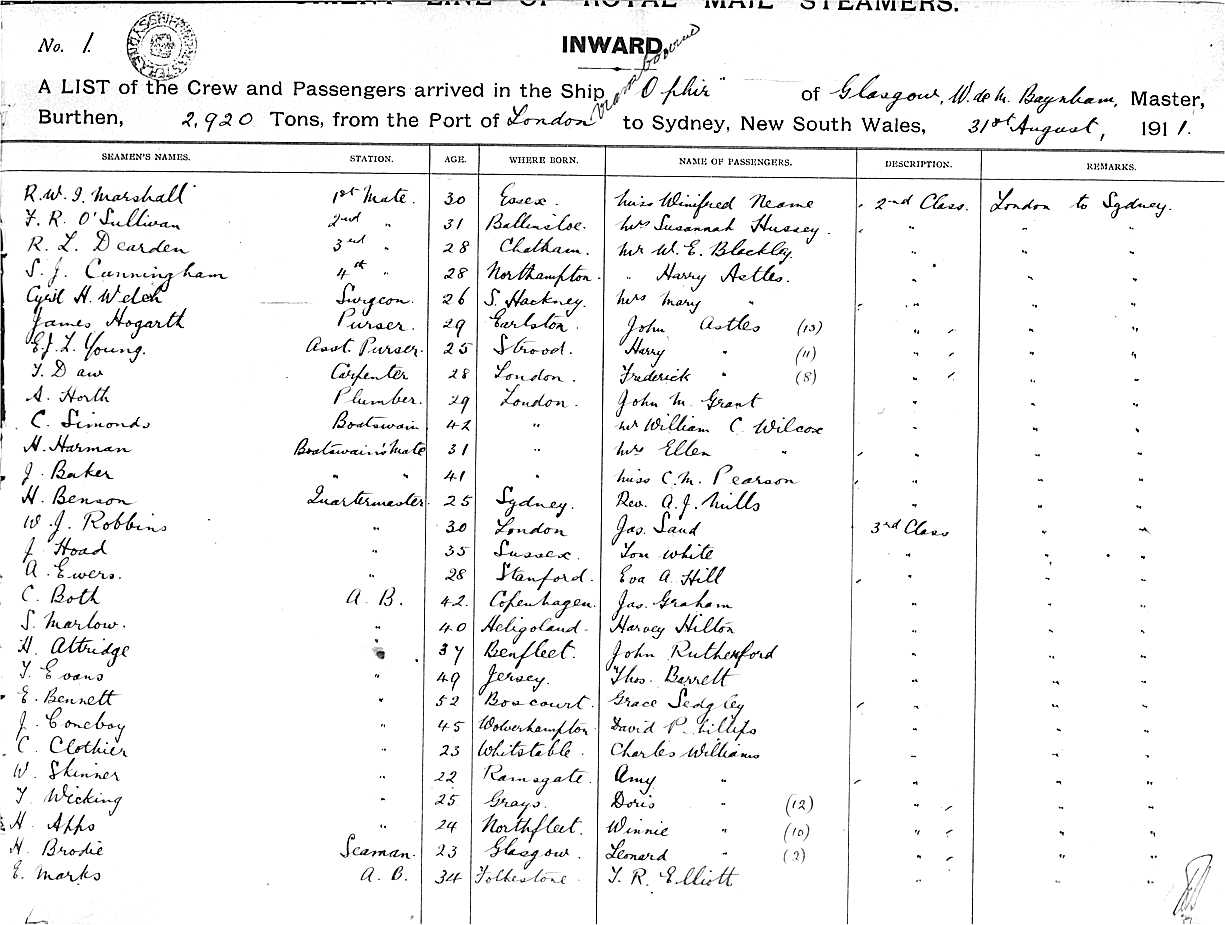 ORIENT LINE OF ROYAL MAIL STEAMERS.
No. 1.
INWARD
A LIST of the Crew and Passengers arrived in the Ship "Ophir" of Glasgow, W. de M. Baynham, Master,
Burthen, 2,920 Tons, from the Port of London to Sydney, New South Wales, 31st August, 1911.
SEAMEN'S NAMES. STATION. AGE. WHERE BORN. NAME OF PASSENGERS. DESCRIPTION. REMARKS.
R. W. I. Marshall 1st Mate. 30 Essex. Miss Winifred Neame 2nd Class. London to Sydney.
F. R. O'Sullivan 2nd " 31 Ballinsloe. Mrs Susannah Hussey. " " "
R. L. Dearden 3rd " 28 Chatham. Mr W. E. Blackley. " " "
S. J. Cunningham 4th " 28 Northampton. " Harry Astles. " " "
Cyril H. Welch Surgeon. 26 S. Hackney. Mrs Mary " " " "
James Hogarth Purser. 29 Earlston. John Astles (13) " " "
E. J. L. Young. Asst. Purser. 25 Strood. Harry " (11) " " "
T. Daw Carpenter 28 London. Frederick " (8) " " "
A. Horth Plumber. 29 London. John M. Grant " " "
C. Simonds Boatswain 42 " Mr William C. Wilcox " " "
H. Harman Boatswain's Mate 31 " Mrs Ellen " " " "
J. Baker " " 41 " Miss C. M. Pearson " " "
H. Benson Quartermaster. 25 Sydney. Rev. A. J. Mills " " "
W. J. Robbins " 30 London Jas. Sand 3rd Class " "
J. Hoad " 35 Sussex. Tom White " " "
A. Ewers. " 28 Stanford. Eva A. Hill " " "
C. Both A. B. 42. Copenhagen. Jas. Graham " " "
S. Marlow. " 40 Heligoland. Harvey Hilton " " "
H. Attridge " 37 Benfleet. John Rutherford " " "
T. Evans " 49 Jersey. Thos. Barrett " " "
E. Bennett " 52 Boscourt. Grace Sedgley " " "
J. Coneboy " 45 Wolverhampton. David Phillips " " "
C. Clothier " 23 Whitstable. Charles Williams " " "
W. Skinner " 22 Ramsgate. Amy " " " "
T. Wicking " 25 Grays. Doris " (12) " " "
H. Apps " 24 Northfleet. Winnie " (10) " " "
H. Brodie Seaman. 23 Glasgow. Leonard " (2) " " "
E. Marks A. B. 34 Folkestone. T. R. Elliott " " "